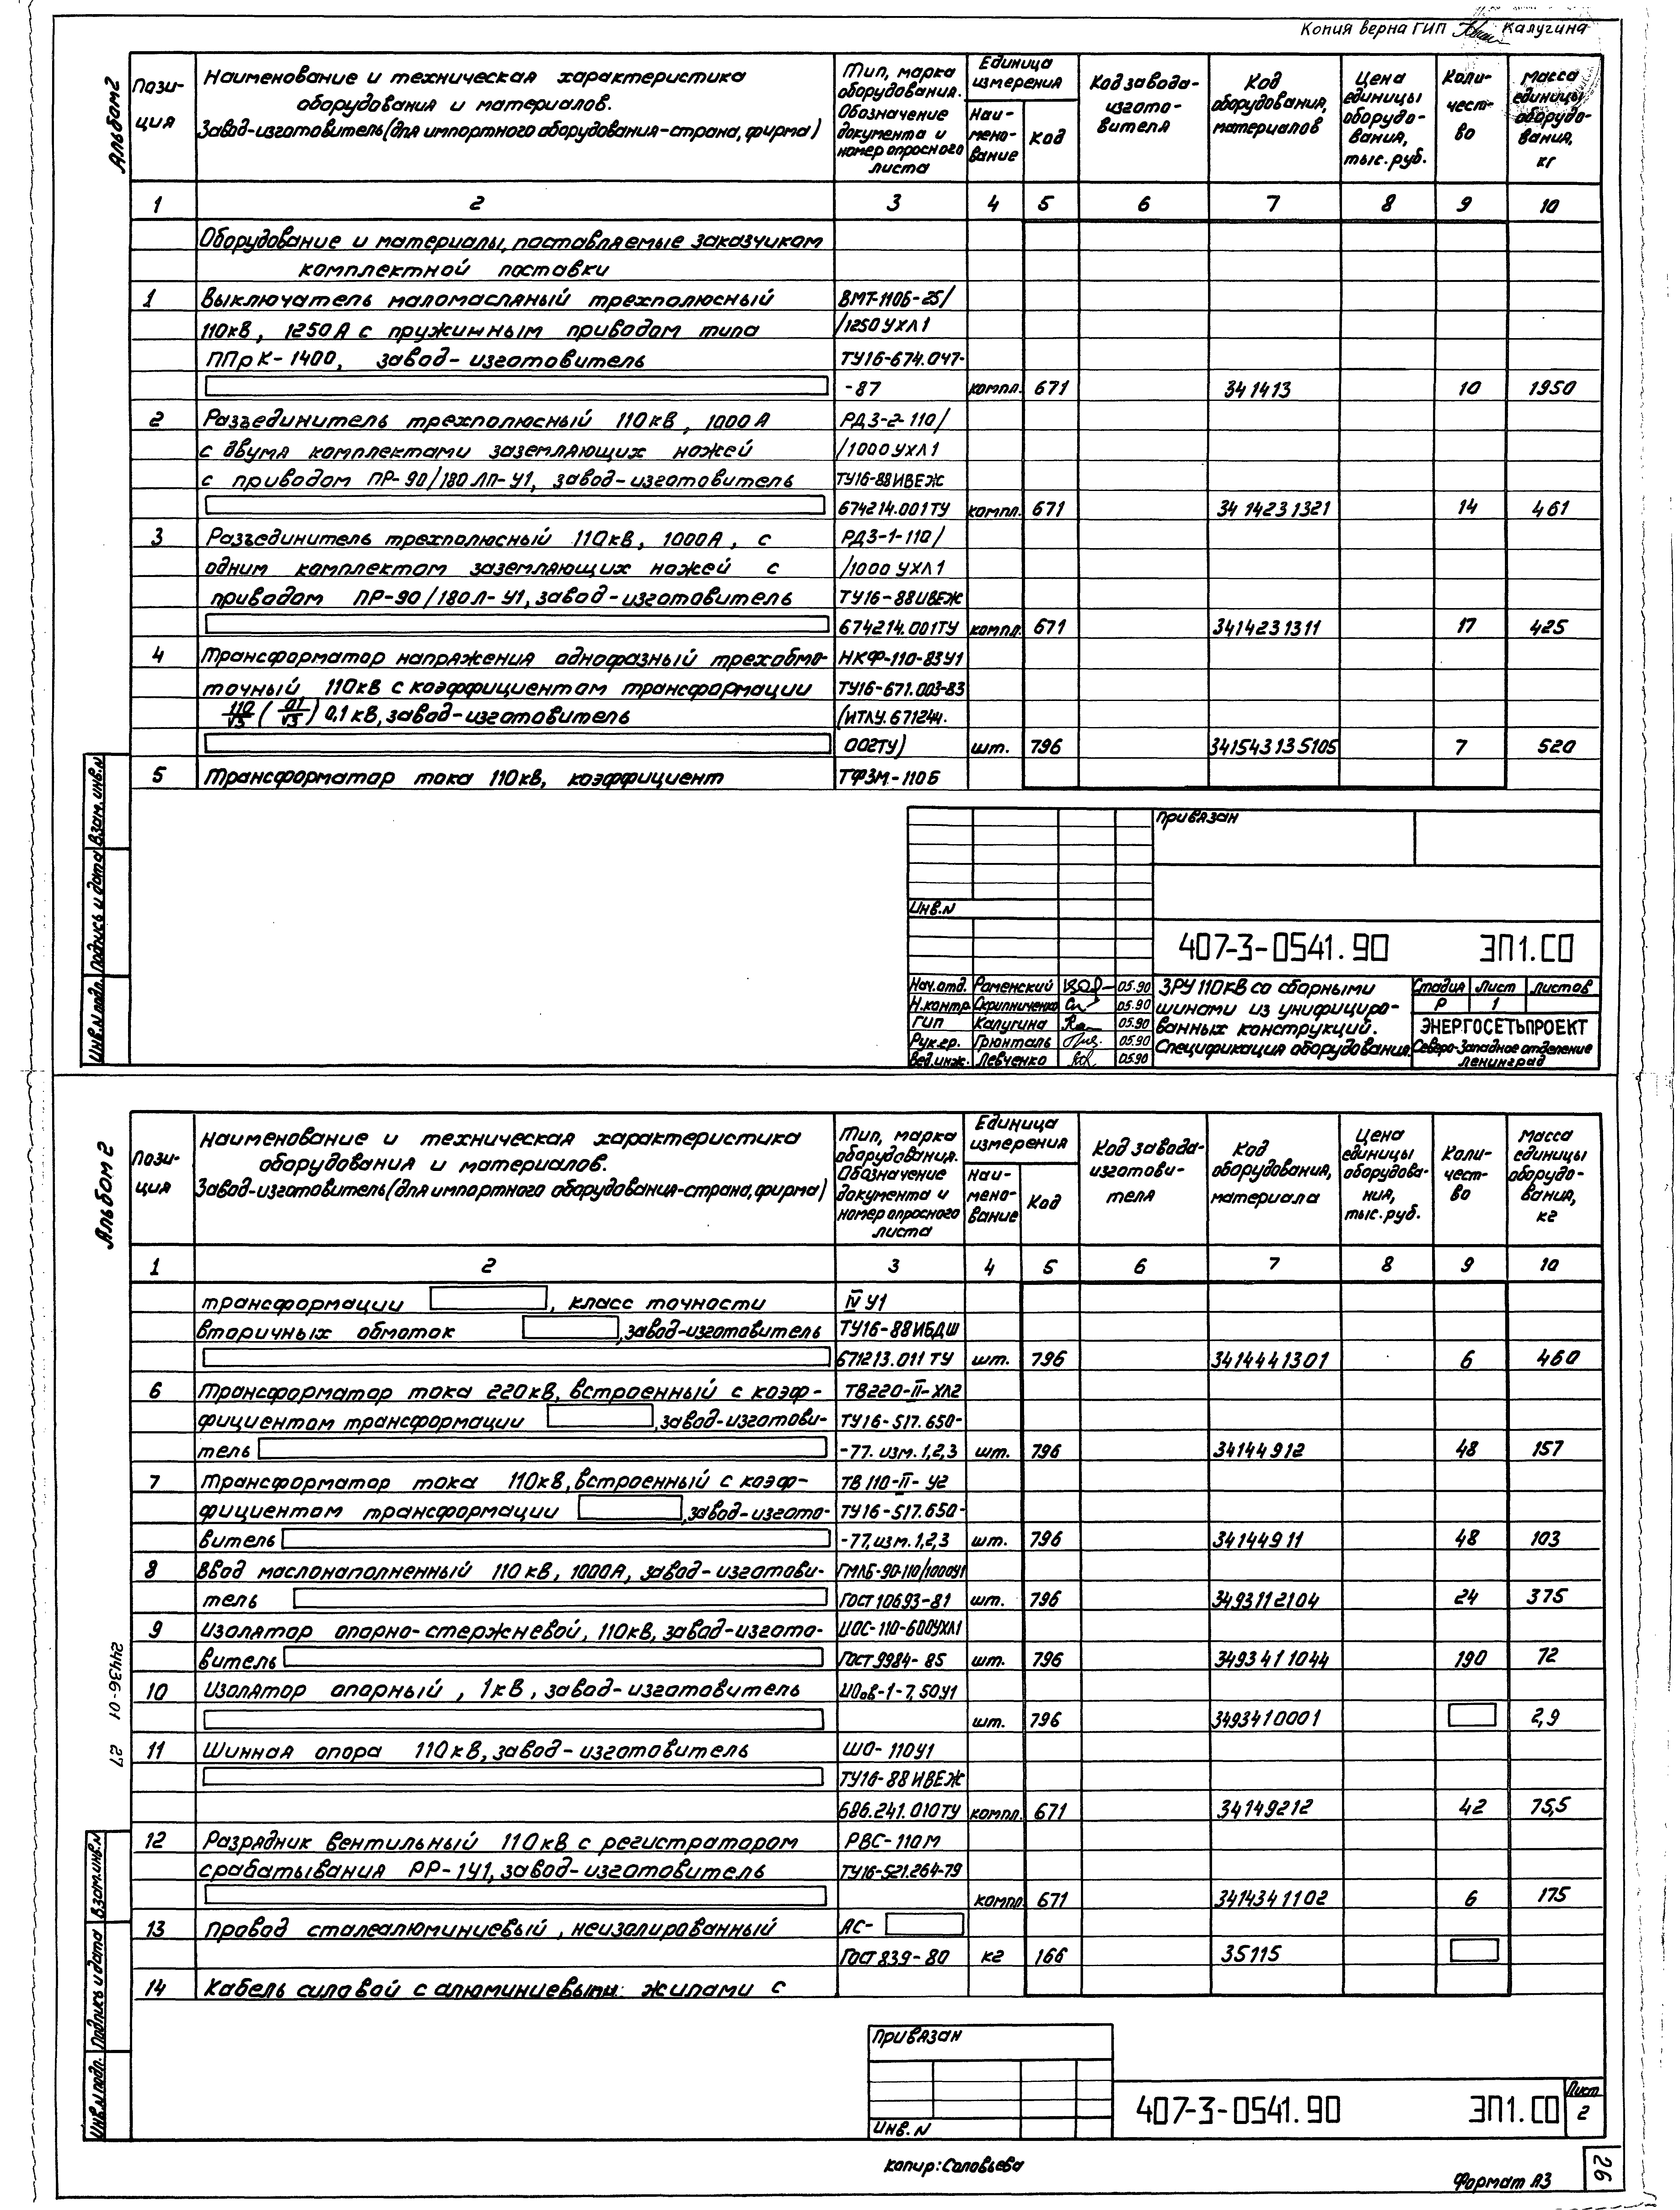 Копия верна ГИП Калугина
Альбом 2
Пози-
ция
Наименование и техническая характеристика
оборудования и материалов.
Завод-изготовитель (для импортного оборудования-страна, фирма)
Тип, марка
оборудования.
Обозначение
документа и
номер опросного
листа
Единица
измерения
Наи-
мено-
вание
Код
Код завода-
изгото-
вителя
Код
оборудования,
материалов
Цена
единицы
оборудо-
вания,
тыс. руб.
Коли-
чест-
во
Масса
единицы
оборудо-
вания,
кг
1 2 3 4 5 6 7 8 9 10
Оборудование и материалы, поставляемые заказчиком
комплектной поставки
1 Выключатель маломасляный трехполюсный ВМТ-110Б-25/
110кВ, 1250А с пружинным приводом типа /1250 УХЛ1
ППрК-1400, завод-изготовитель ТУ16-674.047-
-87 компл. 671 341413 10 1950
2 Разъединитель трехполюсный 110кВ, 1000А РДЗ-2-110/
с двумя комплектами заземляющих ножей /1000 УХЛ1
с приводом ПР-90/180 ЛП-У1, завод-изготовитель ТУ16-88ИВЕЖ
674214.001ТУ компл. 671 3414231321 14 461
3 Разъединитель трехполюсный 110кВ, 1000А, с РДЗ-1-110/
одним комплектом заземляющих ножей с /1000 УХЛ1
приводом ПР-90/180Л-У1, завод-изготовитель ТУ16-88ИВЕЖ
674214.001ТУ компл. 671 3414231311 17 425
4 Трансформатор напряжения однофазный трехобмо- НКФ-110-83У1
точный 110кВ с коэффициентом трансформации ТУ16-671.003-83
110/√3 (0,1/√3) 0,1 кВ, завод-изготовитель (ИТЛУ.671244.
002ТУ) шт. 796 341543135105 7 520
5 Трансформатор тока 110кВ, коэффициент ТФЗМ-110Б
Взам. инв.N
Подпись и дата
Инв.N подл.
Привязан
Инв.N
407-3-0541.90 ЭП1.СО
Нач.отд. Раменский 05.90
Н.контр. Скрипниченко 05.90
ГИП Калугина 05.90
Рук.гр. Грюнталь 05.90
Вед.инж. Левченко 05.90
ЗРУ 110кВ со сборными
шинами из унифициро-
ванных конструкций.
Спецификация оборудования.
Стадия Лист Листов
Р 1
ЭНЕРГОСЕТЬПРОЕКТ
Северо-Западное отделение
Ленинград
Альбом 2
Пози-
ция
Наименование и техническая характеристика
оборудования и материалов.
Завод-изготовитель (для импортного оборудования-страна, фирма)
Тип, марка
оборудования.
Обозначение
документа и
номер опросного
листа
Единица
измерения
Наи-
мено-
вание
Код
Код завода-
изготови-
теля
Код
оборудования,
материала
Цена
единицы
оборудова-
ния,
тыс. руб.
Коли-
чест-
во
Масса
единицы
оборудо-
вания,
кг
1 2 3 4 5 6 7 8 9 10
трансформации , класс точности IV У1
вторичных обмоток , завод-изготовитель ТУ16-88ИБДШ
671213.011 ТУ шт. 796 3414441301 6 460
6 Трансформатор тока 220кВ, встроенный с коэф- ТВ220-II-ХЛ2
фициентом трансформации , завод-изготови- ТУ16-517.650-
тель -77. изм. 1,2,3 шт. 796 34144912 48 157
7 Трансформатор тока 110кВ, встроенный с коэф- ТВ 110-II-У2
фициентом трансформации , завод-изгото- ТУ16-517.650-
витель -77, изм. 1,2,3 шт. 796 34144911 48 103
8 Ввод маслонаполненный 110кВ, 1000А, завод-изготови- ГМЛБ-90-110/1000У1
тель ГОСТ 10693-81 шт. 796 3493112104 24 375
9 Изолятор опорно-стержневой, 110кВ, завод-изгото- ИОС-110-600УХЛ1
витель ГОСТ 9984-85 шт. 796 3493411044 190 72
10 Изолятор опорный, 1кВ, завод-изготовитель ИОоВ-1-7,50У1
шт. 796 3493410001 2,9
11 Шинная опора 110кВ, завод-изготовитель ШО-110У1
ТУ16-88ИВЕЖ
686.241.010ТУ компл. 671 34149212 42 75,5
12 Разрядник вентильный 110кВ с регистратором РВС-110М
срабатывания РР-1У1, завод-изготовитель ТУ16-521.264-79
компл. 671 3414341102 6 175
13 Провод сталеалюминиевый, неизолированный АС-
ГОСТ 839-80 кг 166 35115
14 Кабель силовой с алюминиевыми жилами с
24436-01 27
Взам.инв.N
Подпись и дата
Инв.N подл.
Привязан
Инв.N
407-3-0541.90 ЭП1.СО
Лист
2
Копир: Соловьева
Формат А3
26